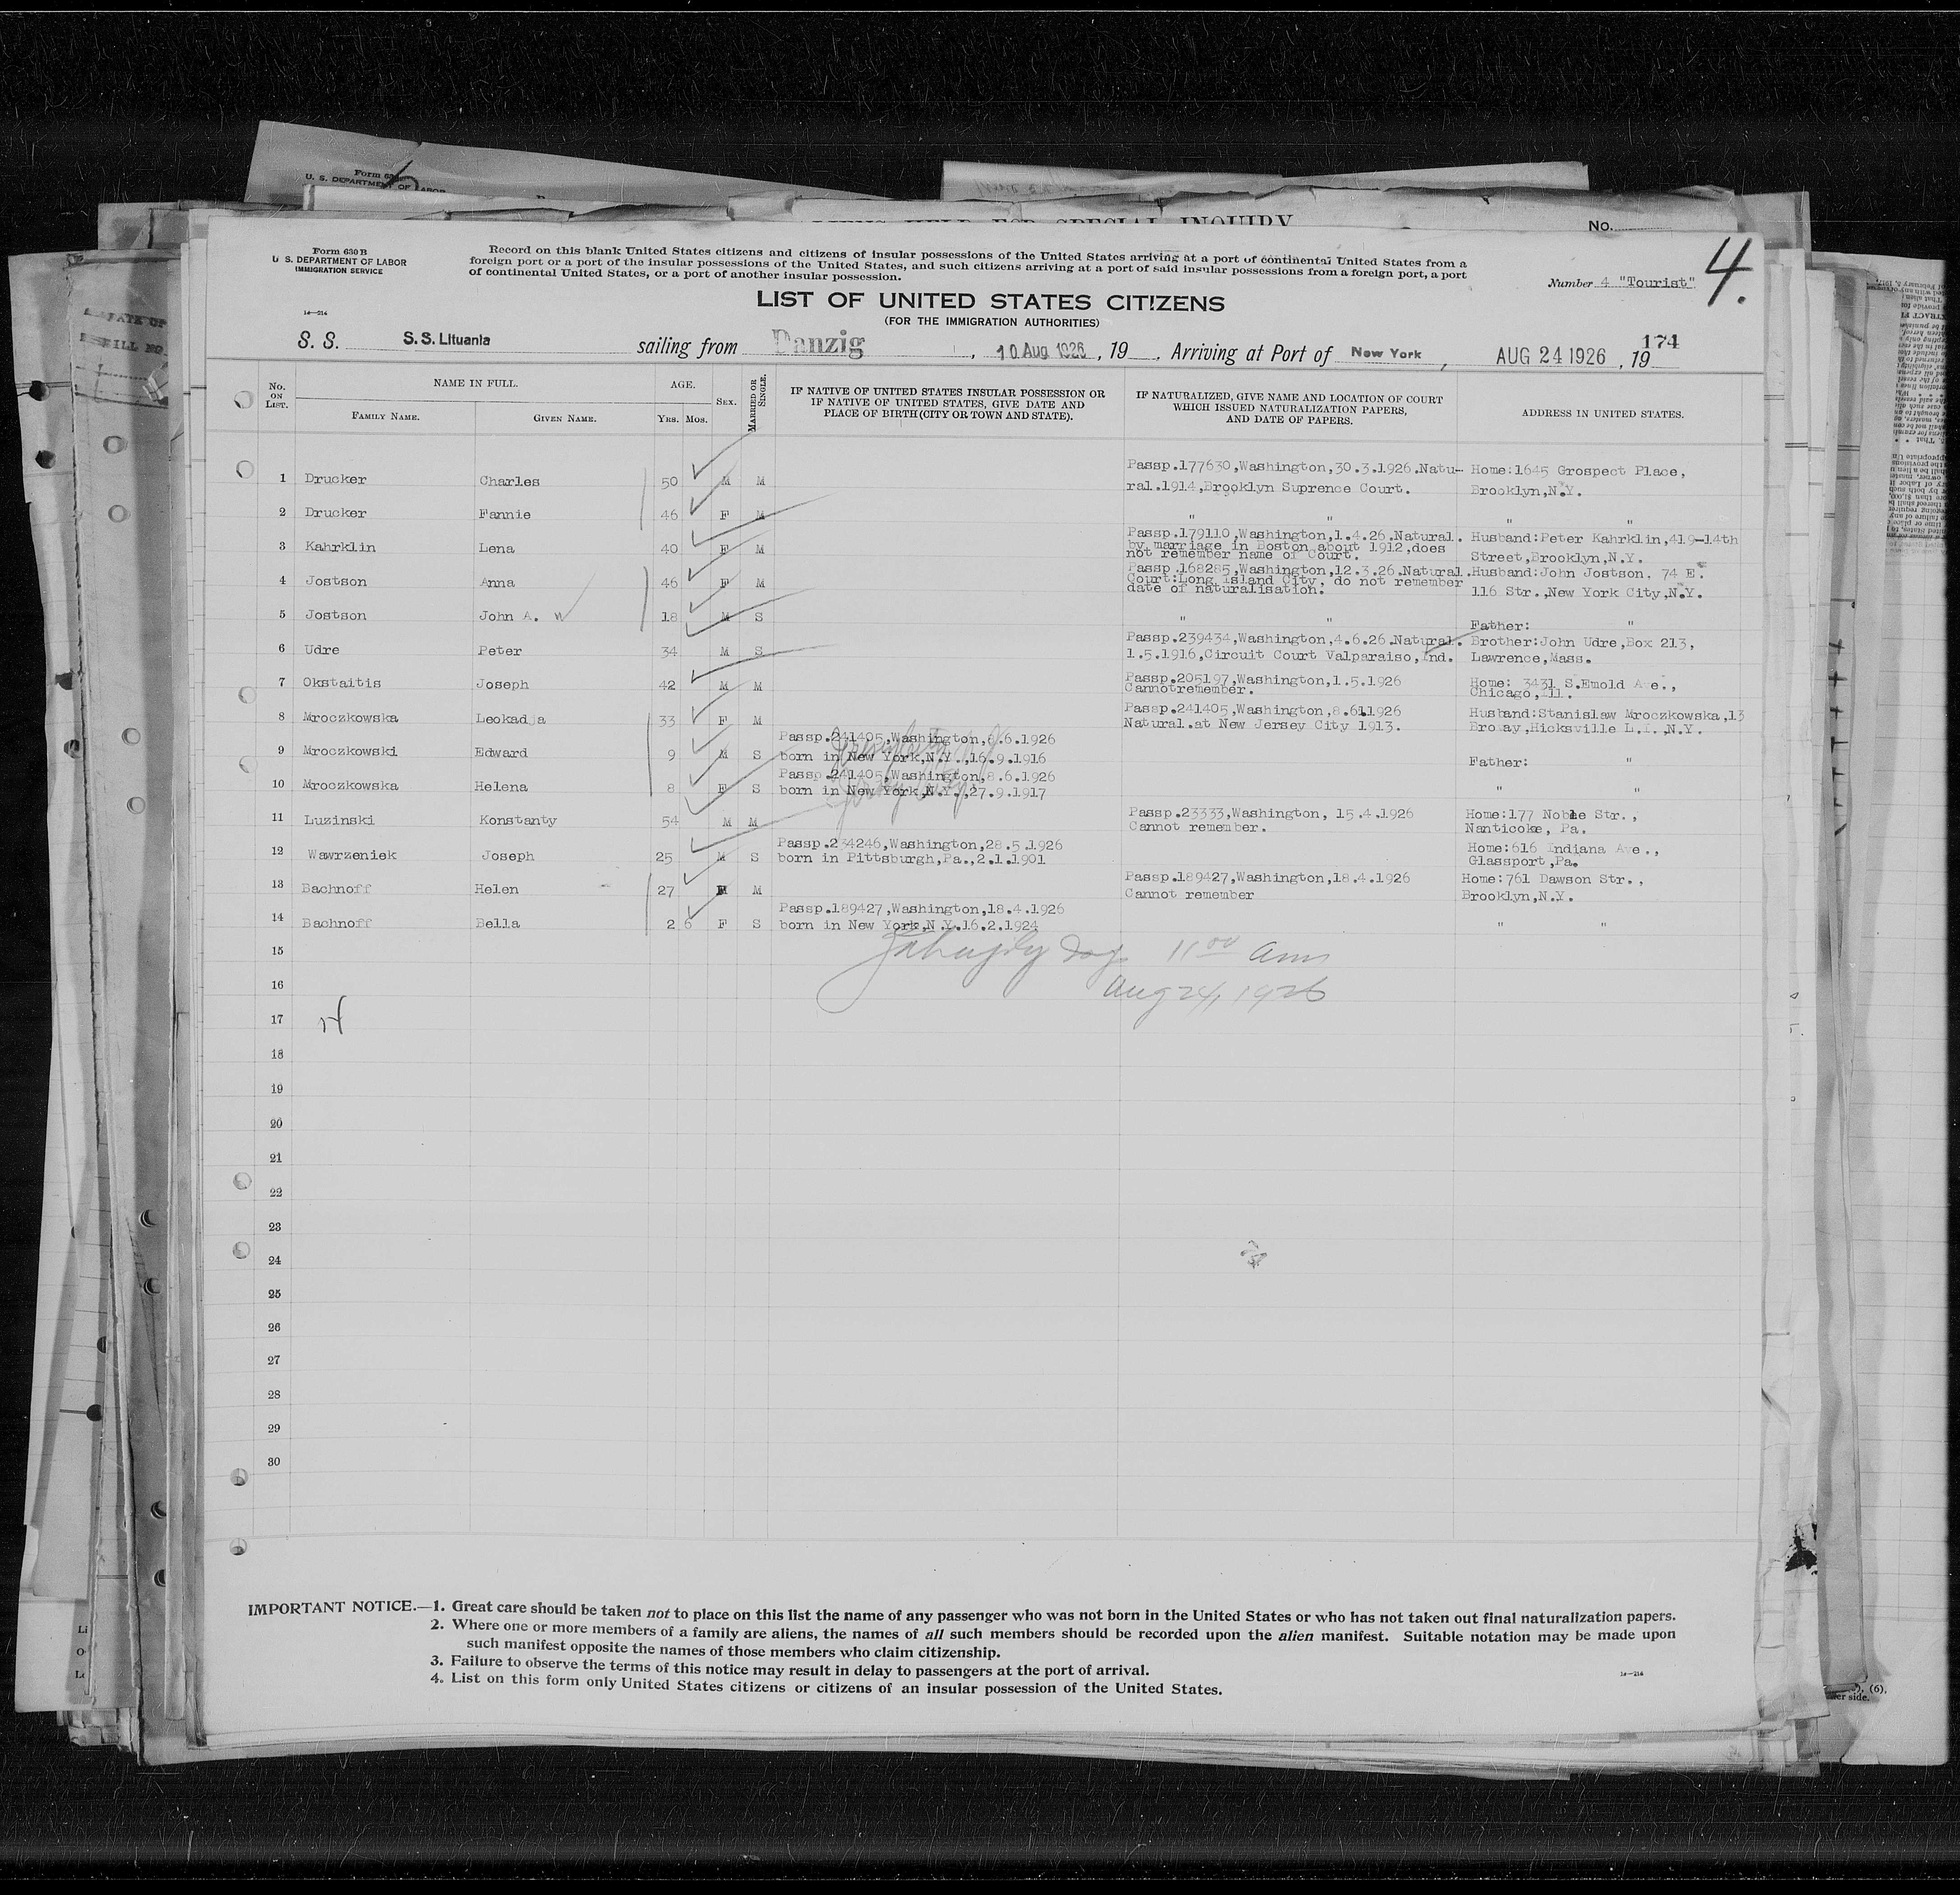 Form 630
U. S. DEPARTMENT OF LABOR
ALIENS HELD FOR SPECIAL INQUIRY
No.
Form 630 B
U. S. DEPARTMENT OF LABOR
IMMIGRATION SERVICE
Record on this blank United States citizens and citizens of insular possessions of the United States arriving at a port of continental United States from a
foreign port or a port of the insular possessions of the United States, and such citizens arriving at a port of said insular possessions from a foreign port, a port
of continental United States, or a port of another insular possession.
Number 4 "Tourist"
4.
LIST OF UNITED STATES CITIZENS
(FOR THE IMMIGRATION AUTHORITIES)
14—214
174
S. S. S. S. Lituania sailing from Danzig, 10 Aug 1926, 19 , Arriving at Port of New York, AUG 24 1926, 19
No. ON LIST.
NAME IN FULL.
FAMILY NAME.
GIVEN NAME.
AGE.
YRS. MOS.
SEX.
MARRIED OR SINGLE.
IF NATIVE OF UNITED STATES INSULAR POSSESSION OR
IF NATIVE OF UNITED STATES, GIVE DATE AND
PLACE OF BIRTH (CITY OR TOWN AND STATE).
IF NATURALIZED, GIVE NAME AND LOCATION OF COURT
WHICH ISSUED NATURALIZATION PAPERS,
AND DATE OF PAPERS.
ADDRESS IN UNITED STATES.
Passp.177630,Washington,30.3.1926.Natu- Home:1645 Grospect Place,
1 Drucker Charles 50 M M ral.1914,Brooklyn Suprence Court. Brooklyn,N.Y.
2 Drucker Fannie 46 F M " " " "
Passp.179110,Washington,1.4.26.Natural. Husband:Peter Kahrklin,419-14th
3 Kahrklin Lena 40 F M by marriage in Boston about 1912,does
not remember name of Court. Street,Brooklyn,N.Y.
Passp.168285,Washington,12.3.26.Natural. Husband:John Jostson. 74 E.
4 Jostson Anna 46 F M Court:Long Island City, do not remember
date of naturalisation. 116 Str.,New York City,N.Y.
5 Jostson John A. 18 M S " " Father: "
Passp.239434,Washington,4.6.26.Natural. Brother:John Udre,Box 213,
6 Udre Peter 34 M S 1.5.1916,Circuit Court Valparaiso,Ind. Lawrence,Mass.
7 Okstaitis Joseph 42 M M Passp.205197,Washington,1.5.1926 Home: 3431 S.Emold Ave.,
Cannotremember. Chicago,Ill.
Passp.241405,Washington,8.6.1926 Husband:Stanislaw Mroczkowska,13
8 Mroczkowska Leokadja 33 F M Natural.at New Jersey City 1913. Broway,Hicksville L.I.,N.Y.
Passp.241405,Washington,8.6.1926
9 Mroczkowski Edward 9 M S born in New York,N.Y.,16.9.1916 Father: "
Passp.241405,Washington,8.6.1926
10 Mroczkowska Helena 8 F S born in New York,N.Y.,27.9.1917 " "
11 Luzinski Konstanty 54 M M Passp.23333,Washington, 15.4.1926 Home:177 Noble Str.,
Cannot remember. Nanticoke, Pa.
Passp.234246,Washington,28.5.1926 Home:616 Indiana Ave.,
12 Wawrzeniek Joseph 25 M S born in Pittsburgh,Pa.,2.1.1901 Glassport,Pa.
Passp.189427,Washington,18.4.1926 Home:761 Dawson Str.,
13 Bachnoff Helen 27 F M Cannot remember Brooklyn,N.Y.
Passp.189427,Washington,18.4.1926
14 Bachnoff Bella 2 6 F S born in New York,N.Y.16.2.1924 " "
15
11 00 am
16
Aug 24, 1926
17
18
19
20
21
22
23
24
25
26
27
28
29
30
IMPORTANT NOTICE.—1. Great care should be taken not to place on this list the name of any passenger who was not born in the United States or who has not taken out final naturalization papers.
2. Where one or more members of a family are aliens, the names of all such members should be recorded upon the alien manifest. Suitable notation may be made upon
such manifest opposite the names of those members who claim citizenship.
3. Failure to observe the terms of this notice may result in delay to passengers at the port of arrival.
4. List on this form only United States citizens or citizens of an insular possession of the United States.
14—214